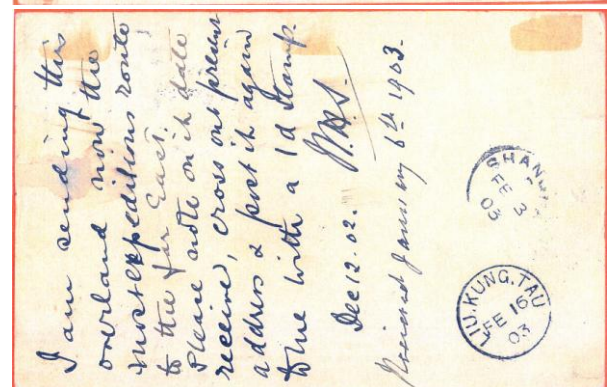 I am sending this
overland now the
most expeditious route
to the far East.
Please note on it date
received, cross out present
address & post it again
to me with a 1d stamp.
Dec 12. 02.
Received January 6th 1903.
SHAN
FE 3
03
LIU.KUNG.TAU
FE 16
03